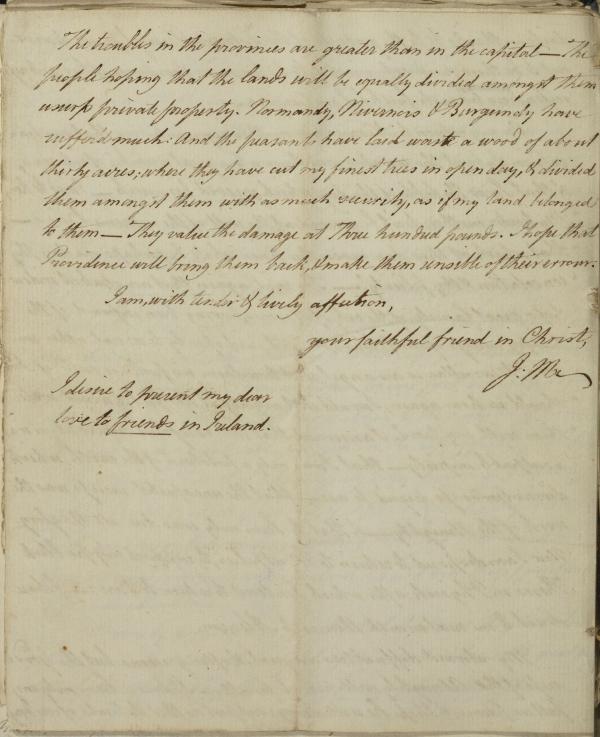 The troubles in the provinces are greater than in the capital — The
people hoping that the lands will be equally divided amongst them
usurp private property. Normandy, Nivernois & Burgundy have
suffer'd much: And the peasants have laid waste a wood of about
thirty acres; where they have cut my finest trees in open day, & divided
them amongst them with as much security, as if my land belonged
to them — They value the damage at Three hundred pounds. I hope that
Providence will bring them back, & make them sensible of their errour.
I am, with tender & lively affection,
your faithful friend in Christ,
J: M
I desire to present my dear
love to friends in Ireland.